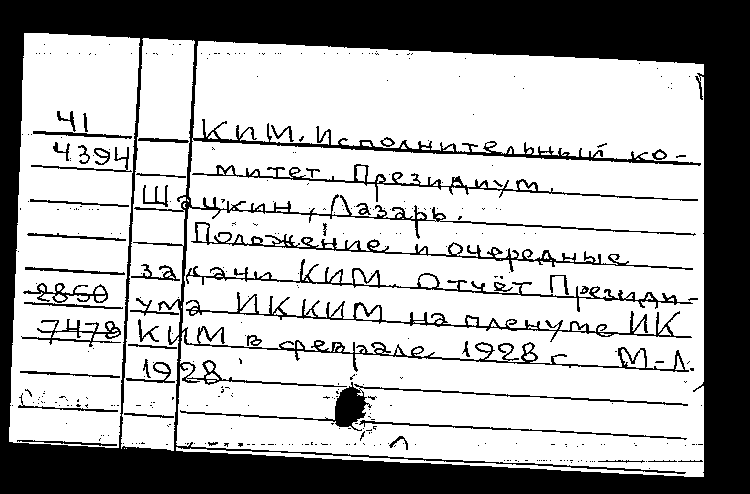 41
КИМ. Исполнительный ко-
4394
митет. Президиум.
Шацкин, Лазарь.
Положение и очередные
задачи КИМ. Отчёт Президи-
2850
ума ИККИМ на пленуме ИК
7478
КИМ в феврале 1928 г. М-Л.
1928.